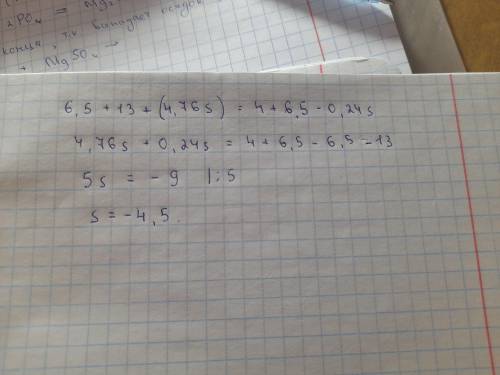 PO₄ = Mg
конца, т.к выпадает осадок
+ MgSO₄ →
6,5 + 13 + (4,76s) = 4 + 6,5 - 0,24s
4,76s + 0,24s = 4 + 6,5 - 6,5 - 13
5s = - 9 |:5
s = - 4,5.